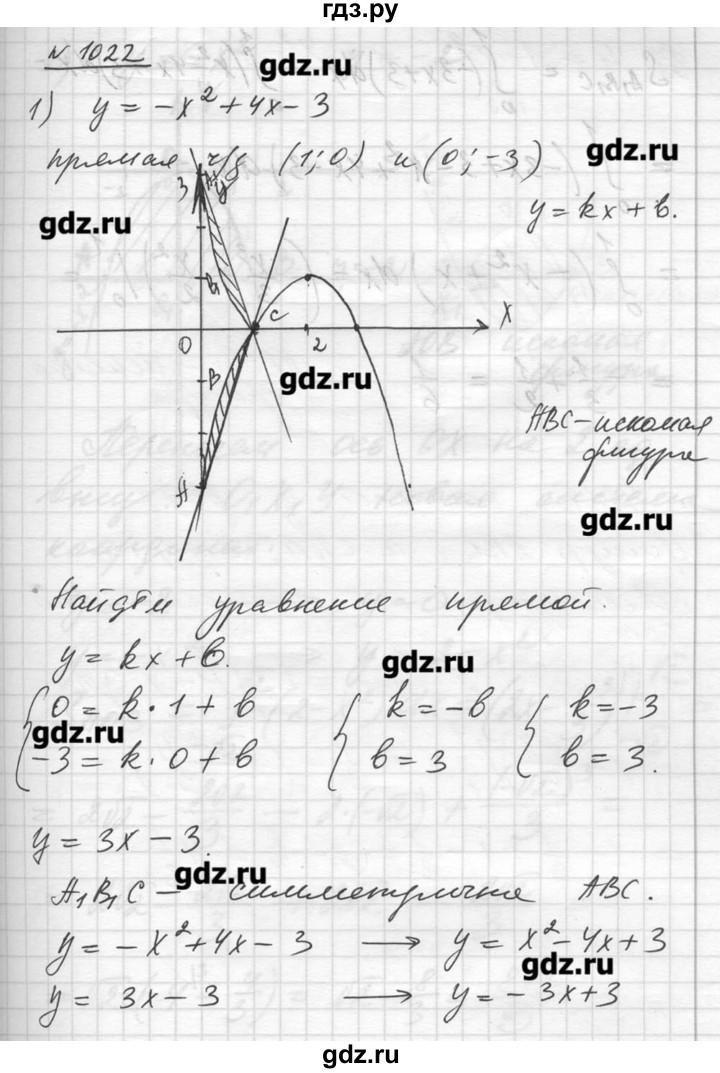 гдз.ру
№ 1022
gdz.ru
1) y = -x² + 4x - 3
прямая ч/з (1; 0) и (0; -3)
gdz.ru
y = kx + b.
gdz.ru
3 A₁ y
B₁
C
x
0 2
B
gdz.ru
ABC - искомая
фигура
A
gdz.ru
Найдём уравнение прямой.
y = kx + b.
gdz.ru
0 = k · 1 + b k = -b k = -3
gdz.ru
-3 = k · 0 + b b = 3 b = 3.
y = 3x - 3.
gdz.ru
A₁B₁C - симметрична ABC.
y = -x² + 4x - 3 → y = x² - 4x + 3
gdz.ru
y = 3x - 3 → y = -3x + 3
gdz.ru